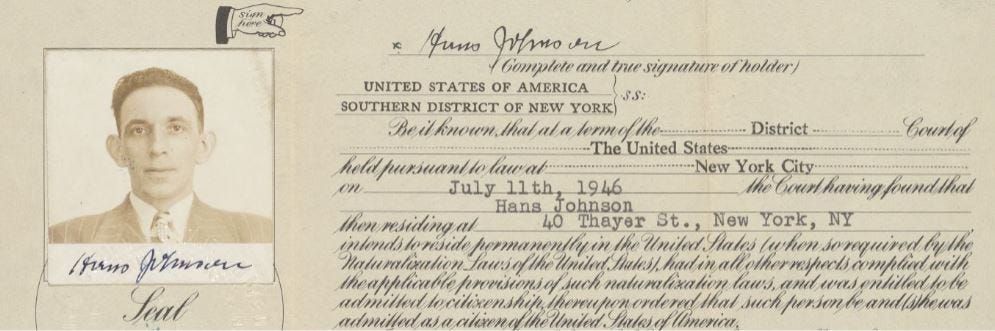 sign
here
x Hans Johnson
(Complete and true signature of holder)
UNITED STATES OF AMERICA
SOUTHERN DISTRICT OF NEW YORK } ss:
Be it known, that at a term of the District Court of
The United States
held pursuant to law at New York City
on July 11th, 1946 the Court having found that
Hans Johnson
then residing at 40 Thayer St., New York, NY
intends to reside permanently in the United States (when so required by the
Naturalization Laws of the United States), had in all other respects complied with
the applicable provisions of such naturalization laws, and was entitled to be
admitted to citizenship, thereupon ordered that such person be and (s)he was
admitted as a citizen of the United States of America.
Hans Johnson
Seal